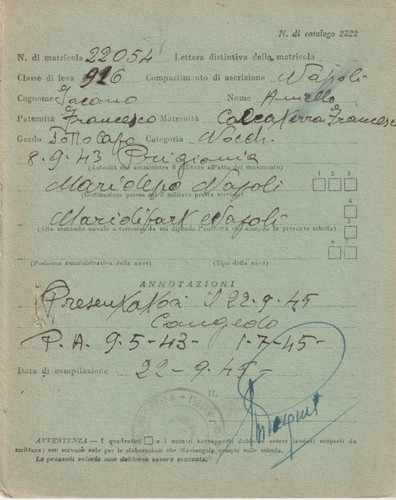 N. di catalogo 2222
N. di matricola 22054 Lettera distintiva della matricola
Classe di leva 916 Compartimento di ascrizione Napoli
Cognome Nome Aniello
Paternità Francesco Maternità Calcaterra Francesca
Grado Sottocapo Categoria Nocch.
8.9.43 Prigionia
(Autorità che amministra il militare all'atto del censimento)
Maridepo Napoli
(Destinazione presso cui il militare presta servizio)
1 2 3
Maridifart Napoli
4
(Alto comando navale o terrestre da cui dipende l'autorità che compila la presente scheda)
5
6
(Posizione amministrativa della nave) (Tipo della nave)
ANNOTAZIONI
Presentatosi il 22-9-45
Congedo
P.A. 9-5-43- 1-7-45-
Data di compilazione 22-9-45-
IL
AVVERTENZA - I quadratini e i numeri sovrapposti debbono essere lasciati scoperti da
scrittura; essi servono solo per le elaborazioni che Maristampia compie sulla scheda.
Le presenti schede non debbono essere piegate.